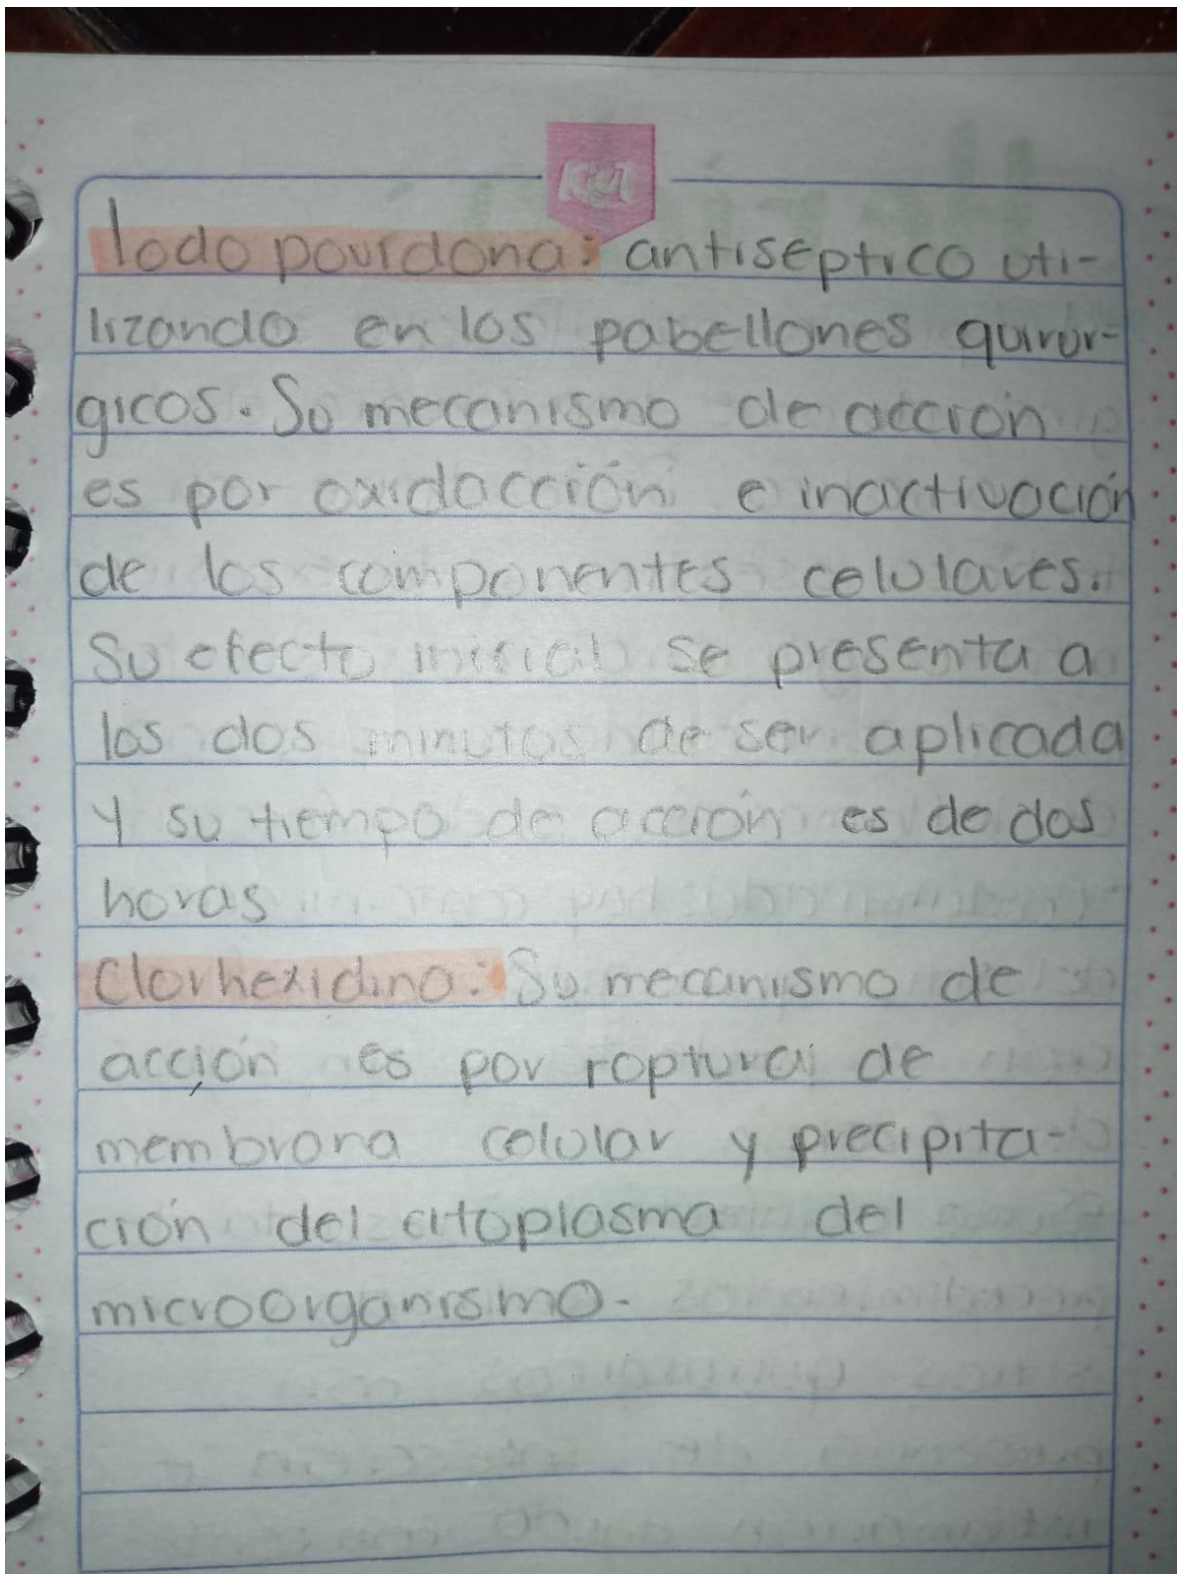 Iodo povidona: antiséptico uti-
lizando en los pabellones quirúr-
gicos. Su mecanismo de acción
es por oxidacción e inactivación
de los componentes celulares.
Su efecto inicial se presenta a
los dos minutos de ser aplicada
y su tiempo de acción es de dos
horas
Clorhexidina: Su mecanismo de
acción es por roptura de
membrana celular y precipita-
ción del citoplasma del
microorganismo.